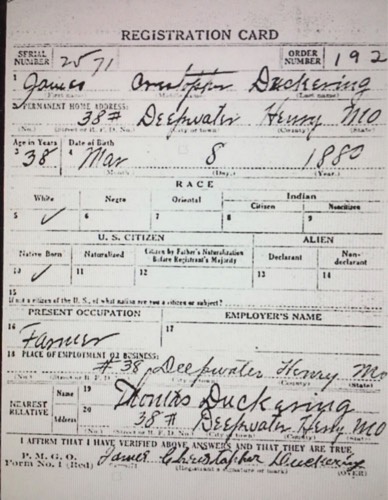 REGISTRATION CARD
SERIAL NUMBER 2571 ORDER NUMBER 192
1 James Cristopher Duckering
(First name) (Middle name) (Last name)
2 PERMANENT HOME ADDRESS:
38# Deepwater Henry MO
(No.) (Street or R. F. D. No.) (City or town) (County) (State)
Age in Years Date of Birth
3 38 4 Mar 8 1880
(Month) (Day) (Year)
RACE
White Negro Oriental Indian
Citizen Noncitizen
5 ✓ 6 7 8 9
U. S. CITIZEN ALIEN
Native Born Naturalized Citizen by Father's Naturalization Before Registrant's Majority Declarant Non-declarant
10 ✓ 11 12 13 14
15
If not a citizen of the U. S., of what nation are you a citizen or subject?
PRESENT OCCUPATION EMPLOYER'S NAME
16 Farmer 17
18 PLACE OF EMPLOYMENT OR BUSINESS:
# 38 Deepwater Henry Mo
(No.) (Street or R. F. D. No.) (City or town) (County) (State)
NEAREST RELATIVE Name 19 Thomas Duckering
Address 20 38 # Deepwater Henry MO
(No.) (City or town) (County) (State)
I AFFIRM THAT I HAVE VERIFIED ABOVE ANSWERS AND THAT THEY ARE TRUE.
P. M. G. O.
Form No. 1 (Red) James Christopher Duckering
(Registrant's signature or mark) (OVER)